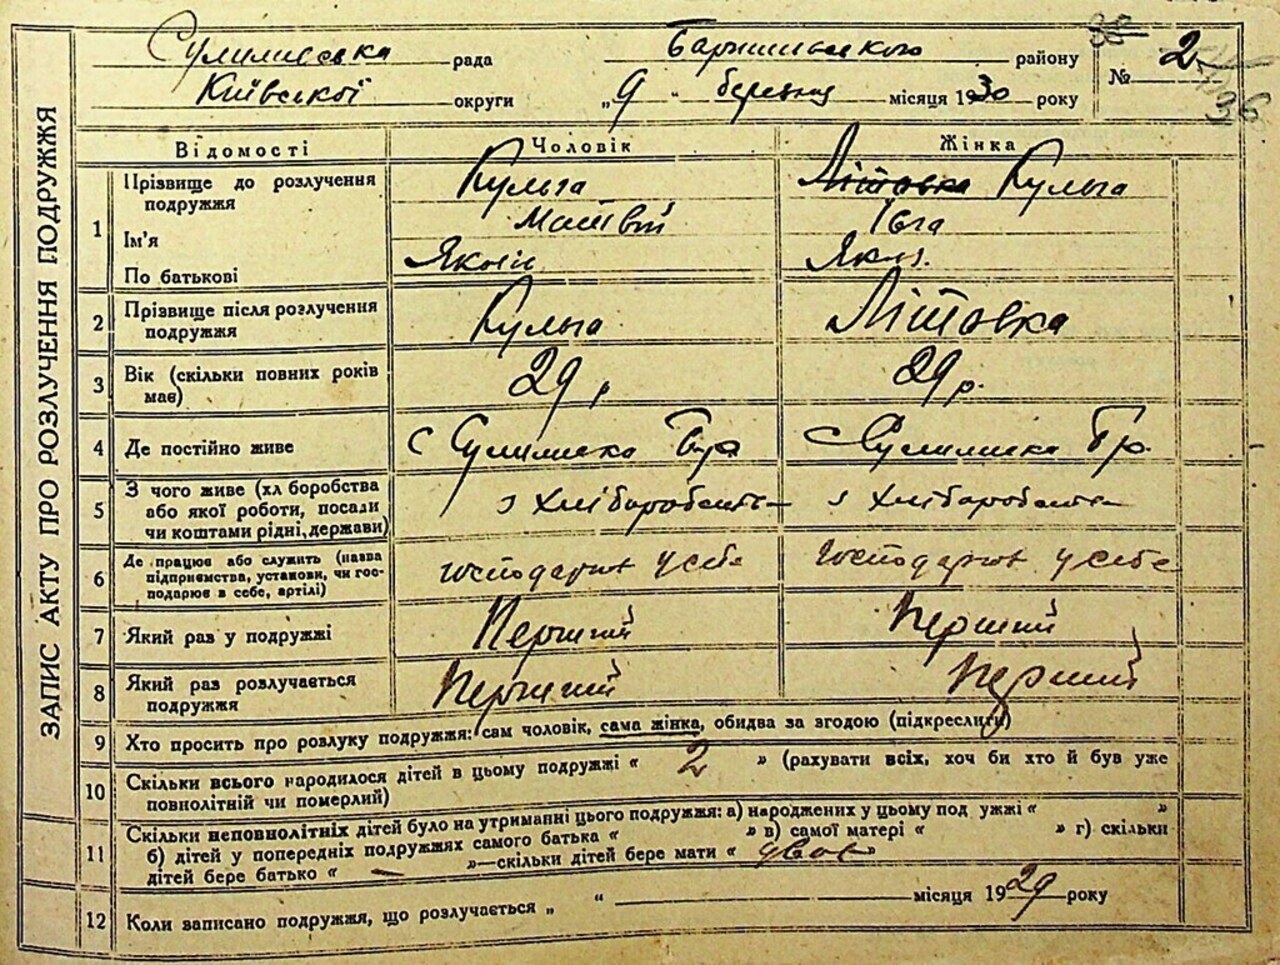 Сулимівська рада Баришивського району № 2
Київської округи „ 9 " березня місяця 1930 року
36
ЗАПИС АКТУ ПРО РОЗЛУЧЕННЯ ПОДРУЖЖЯ
Відомості Чоловік Жінка
1 Прізвище до розлучення подружжя Кульга Літовка Кульга
Ім'я Матвій Ївга
По батькові Яков.
2 Прізвище після розлучення подружжя Кульга Літовка
3 Вік (скільки повних років має) 29 р 29 р.
4 Де постійно живе с Сулимівка Бар с Сулимівка
5 З чого живе (хл боробства або якої роботи, посади чи коштами рідні, держави) з хліборобства з хліборобства
6 Де працює або служить (назва підприємства, установи, чи господарює в себе, артілі) господарює у себе господарює у себе
7 Який раз у подружжі Перший Перший
8 Який раз розлучається подружжя Перший Перший
9 Хто просить про розлуку подружжя: сам чоловік, сама жінка, обидва за згодою (підкреслити)
10 Скільки всього народилося дітей в цьому подружжі „ 2 " (рахувати всіх, хоч би хто й був уже
повнолітній чи померлий)
11 Скільки неповнолітніх дітей було на утриманні цього подружжя: а) народжених у цьому под ужжі „ "
б) дітей у попередніх подружжях самого батька „ " в) самої матері „ " г) скільки
дітей бере батько „ — "—скільки дітей бере мати „ двоє "
12 Коли записано подружжя, що розлучається „ " місяця 1929 року